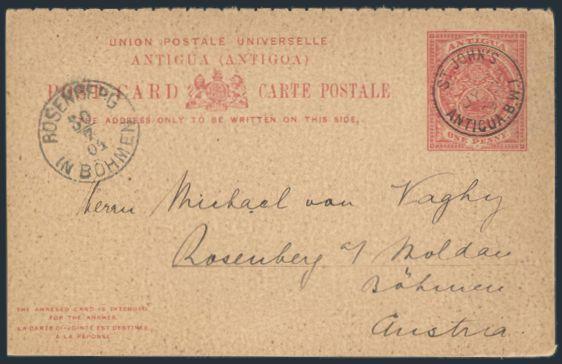 UNION POSTALE UNIVERSELLE
ANTIGUA (ANTIGOA)
POST CARD CARTE POSTALE
THE ADDRESS ONLY TO BE WRITTEN ON THIS SIDE.
ANTIGUA
ONE PENNY
ST. JOHN'S
ANTIGUA.B.W.I.
ROSENBERG
04
IN BÖHMEN
Herrn Michael von Vaghy
Rosenberg a/ Moldau
Böhmen
Austria.
THE ANNEXED CARD IS INTENDED
FOR THE ANSWER.
LA CARTE CI-JOINTE EST DESTINÉE
À LA RÉPONSE